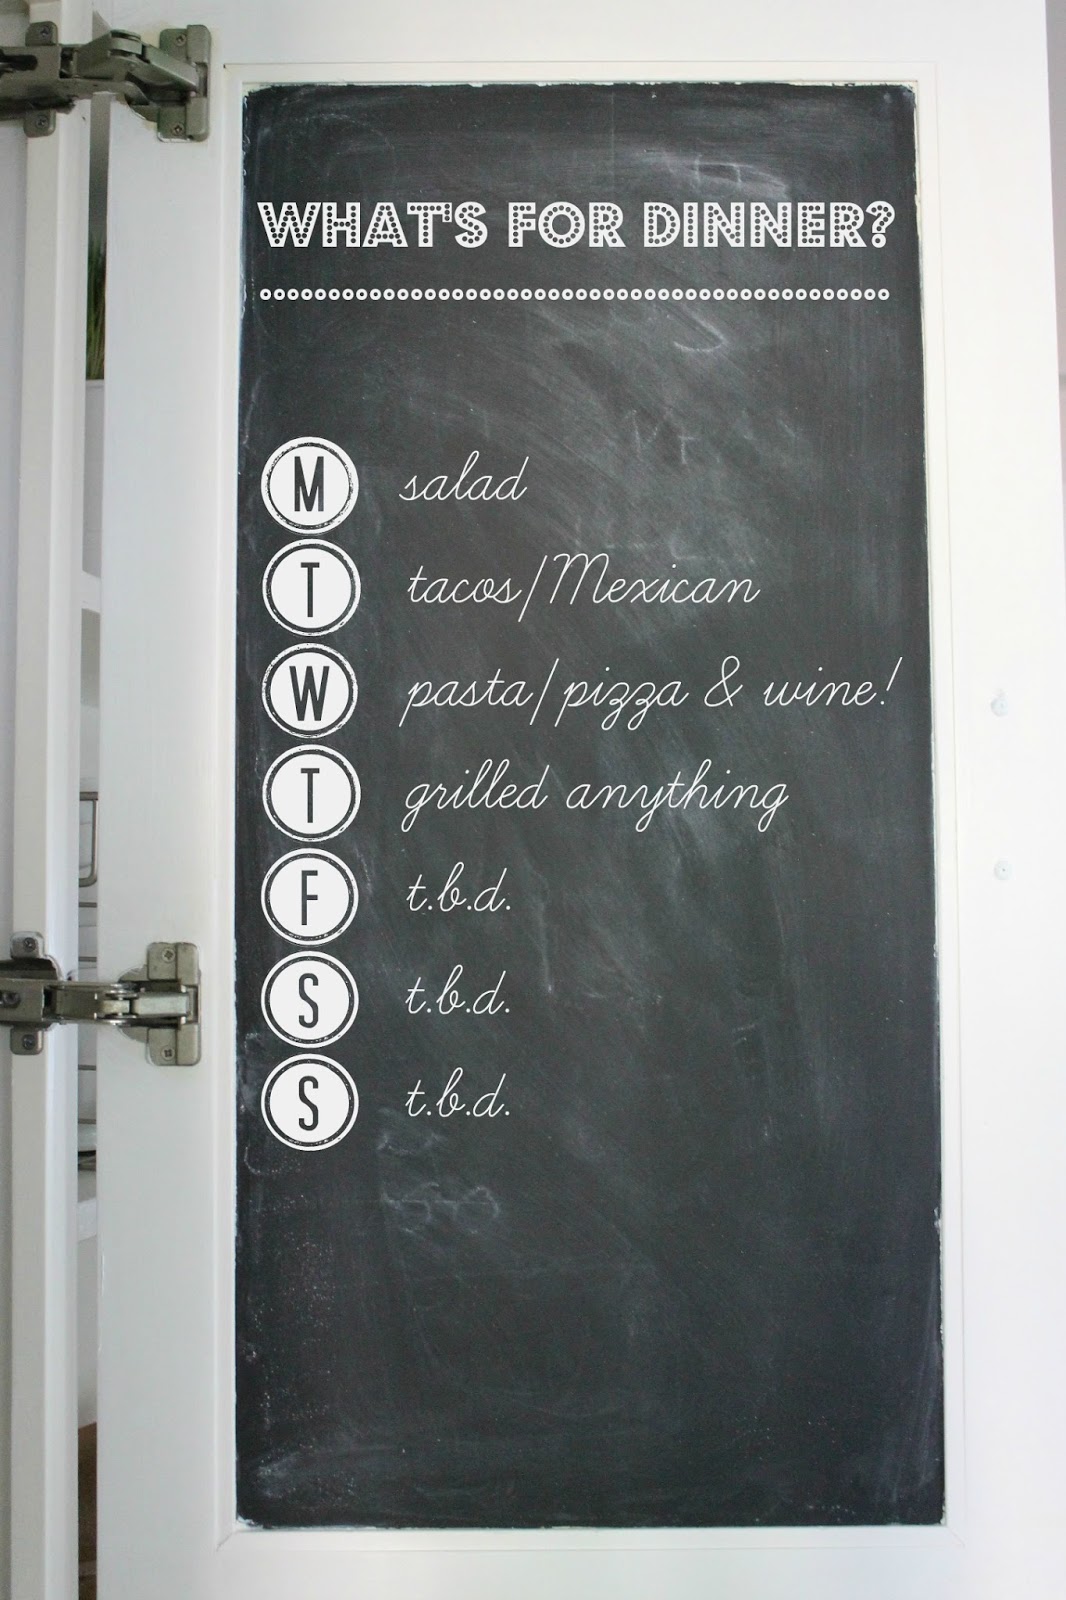 WHAT'S FOR DINNER?
M salad
T tacos/Mexican
W pasta/pizza & wine!
T grilled anything
F t.b.d.
S t.b.d.
S t.b.d.